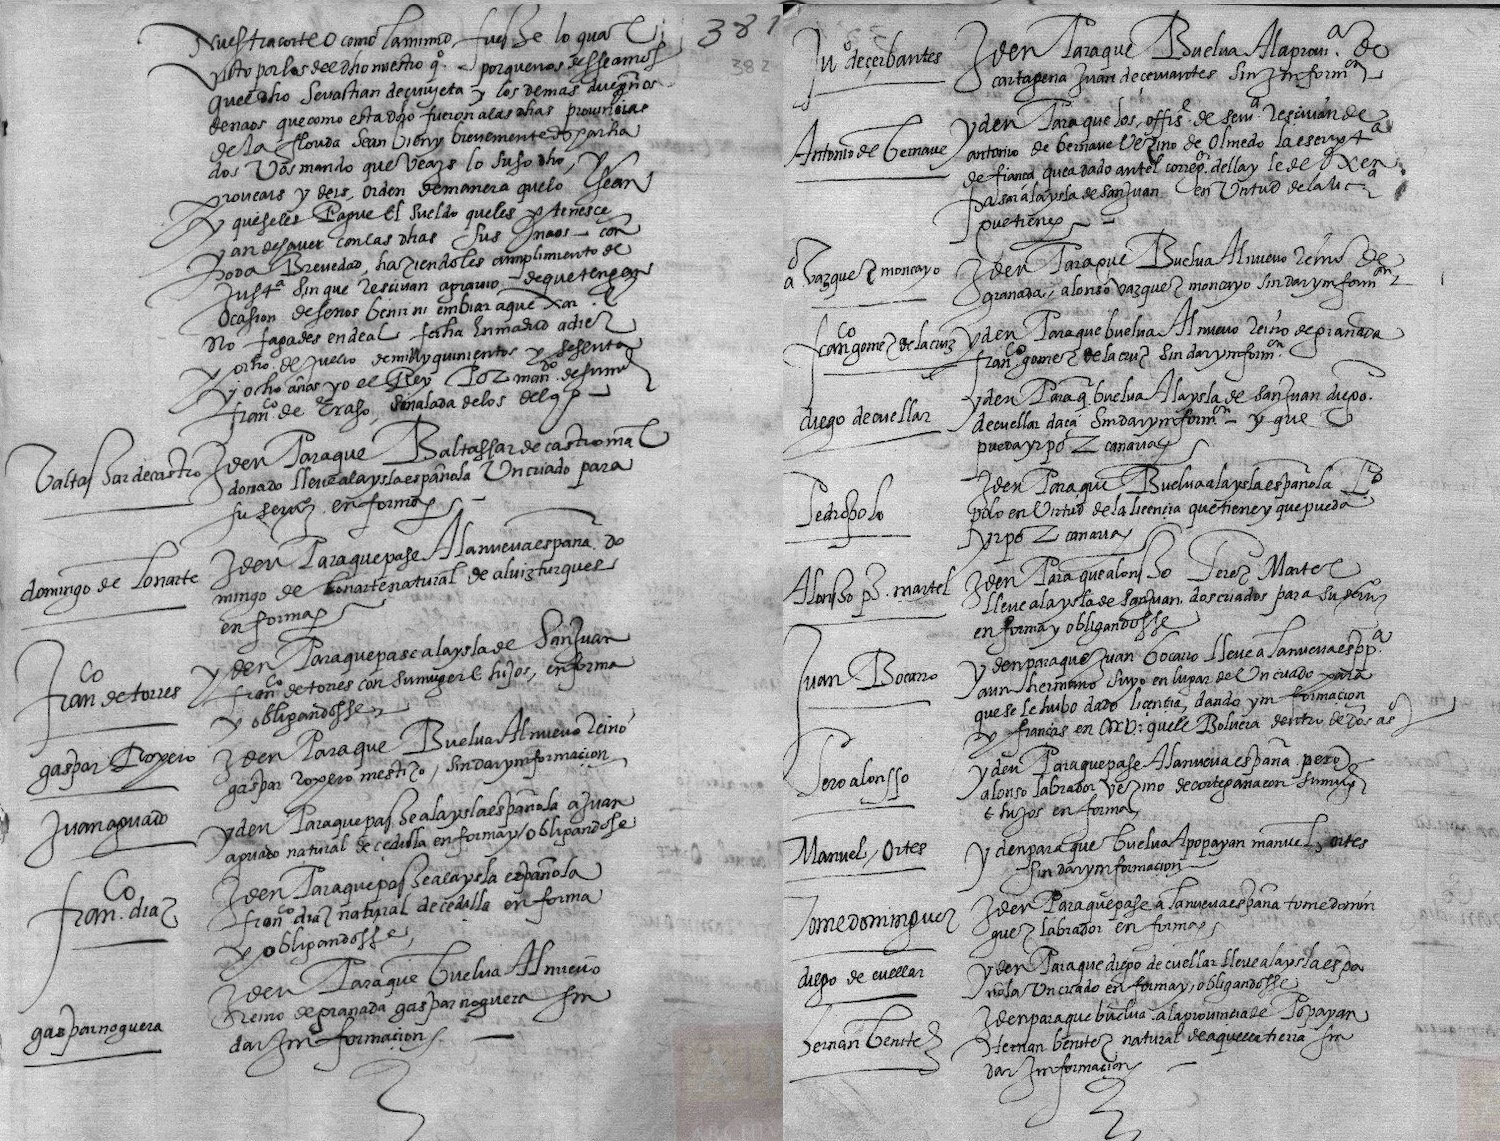 381
382
nuestra corte o como la mi md fuesse lo qual
visto por los del dho nuestro qº. porque nos desseamos
quel dho sevastian de y los demas dueños
de naos que como esta dho fueron a las dhas provincias
de la florida sean bien y brevemente despacha
dos vos mando que veays lo suso dho, y
proveays y deis orden de manera quelo sean
y que se les pague el sueldo que les pertenesce
y an de aver con las dhas sus naos con
toda brevedad, haziendoles cumplimiento de
justª sin que resciban agravio de que tengan
ocasion de se nos benir ni embiar a quexar
no fagades endeal fecha en madrid a diez
y ocho. de Julio de mill y quinientos y sesenta
y ocho años yo el Rey Por mandº. de su md
franco de Eraso, señalada de los del qº
Valtassar de castro
yden Paraque Baltassar de castro mal
donado lleve a la ysla española Un criado para
su serviº en forma
domingo de lonarte
yden Para que pase A la nueva españa. do
mingo de lonarte natural de
en forma
franco de torres
yden Para que pase a la ysla de San Juan
franco de torres con su muger e hijos, en forma
y obligandosse
gaspar Roxero
yden Para que Buelva Al nuevo reino
gaspar roxero mestizo, sin dar ynformacion
Juan aguado
yden Para que passe a la ysla española a Juan
aguado natural de cedilla en forma y obligandosse
franco. diaz
yden Para que passe a la ysla española
franco diaz natural de cedilla en forma
y obligandosse
gaspar noguera
yden Para que buelva Al nuevo
Reino de granada gaspar noguera sin
dar ynformacion
Juº de çerbantes
yden Para que Buelva A la proviª. de
cartagena Juan de cervantes sin ynformon
Antonio de bernave
yden Para que los, offis. de sevª. resciban de
antonio de bernave Vezino de Olmedo la
de fiança que a dado antel della y le dexen
pasar a la ysla de san Juan en Virtud de la licª
que tiene
aº Vazquez moncayo
yden Para que Buelva Al nuevo reino de
granada, alonso vazquez moncayo sin dar ynformon
franco gomez de la cruz
yden Para que buelva Al nuevo reino de granada
franco. gomez de la cruz sin dar ynformon
diego de cuellar
yden Para q buelva A la ysla de San Juan diego.
de cuellar daça sin dar ynformon y que
pueda yr por canaria
Pedro polo
yden Para que Buelva a la ysla española Pº
polo en Virtud de la licencia que tiene y que pueda
yr por canaria
Alonso pz. martel
yden Para que alonso Perez Martel
lleve a la ysla de san Juan. dos criados para su serviº
en forma y obligandosse
Juan Bocarro
yden para que Juan bocarro lleve a la nueva espª
a un hermano suyo en lugar de Un criado para
que se le hubo dado licencia, dando ynformacion
y fianças en que le Bolvera dentro de dos aºs
Pero alonsso
yden Para que pase A la nueva españa. pero
alonso labrador vezino de cortegana con su muger
e hijos en forma
Manuel, Ortes
yden para que buelva A popayan manuel, ortes
sin dar ynformacion
Tome dominguez
yden Para que pase a la nueva españa tome domin
guez labrador en forma
diego de cuellar
yden Para que diego de cuellar lleve a la ysla espa
ñola Un criado en forma y, obligandosse
hernan benitez
yden para que buelva a la provincia de Popayan
Hernan benitez natural de aquella tierra sin
dar ynformacion